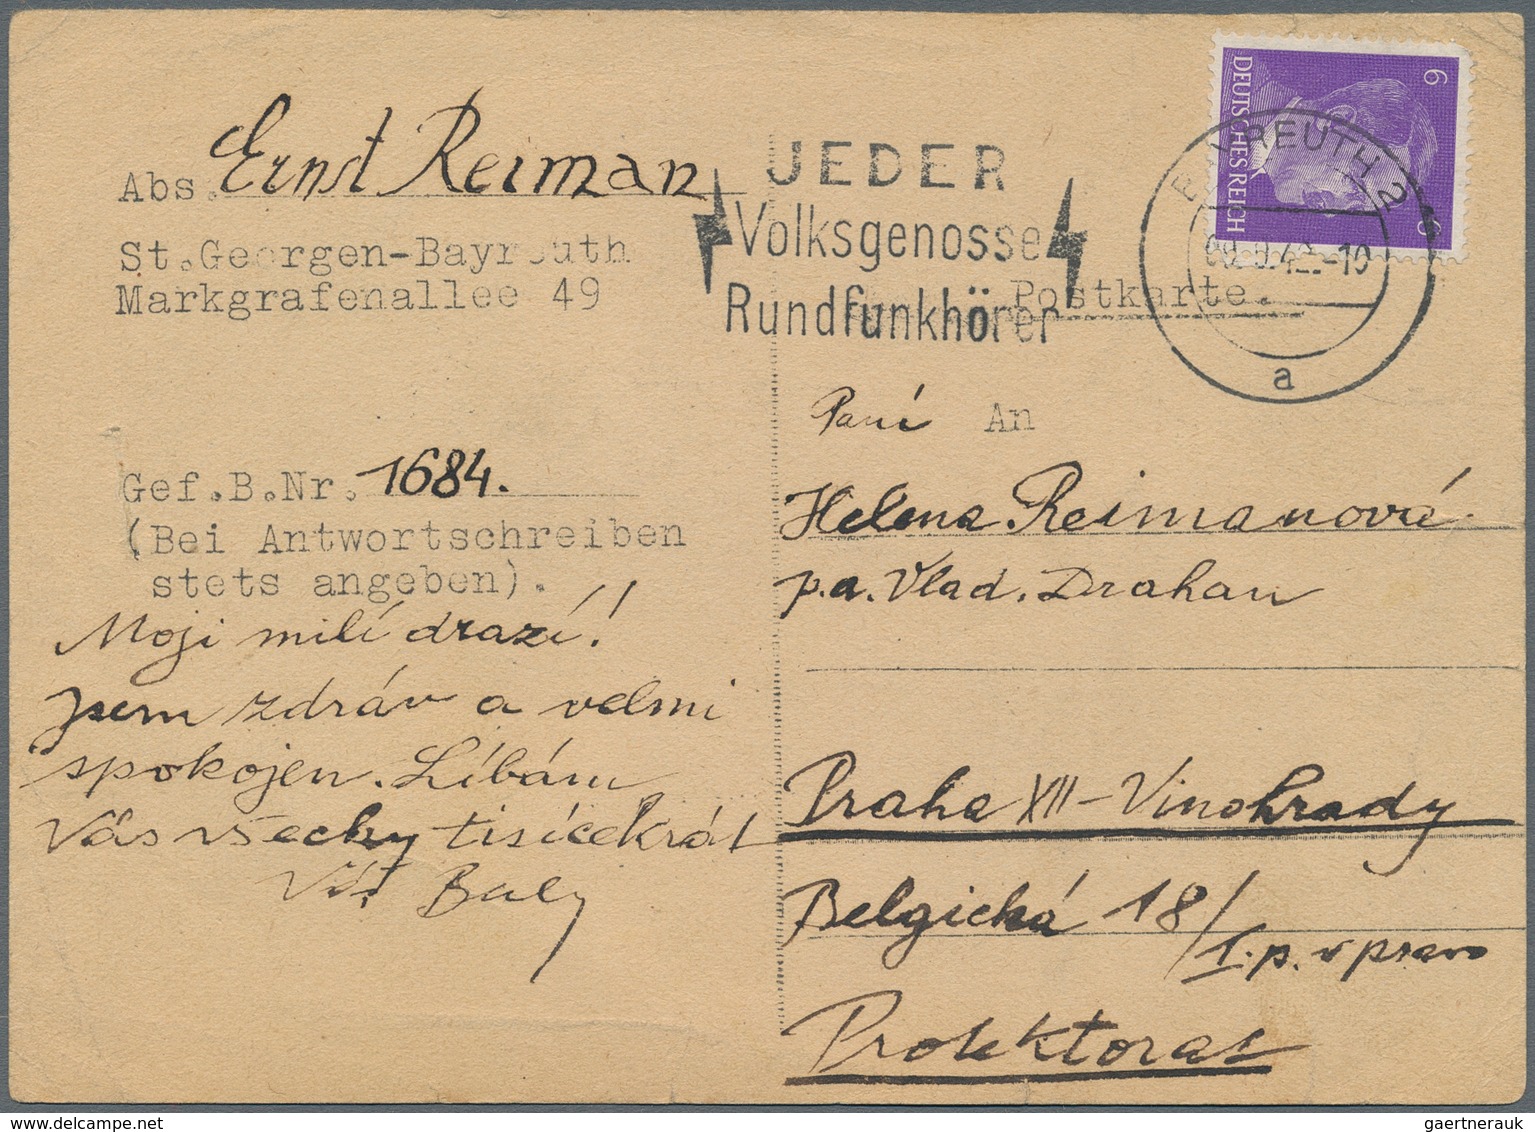 Abs. Ernst Reiman
St. Georgen-Bayreuth
Markgrafenallee 49
Gef.B.Nr. 1684.
(Bei Antwortschreiben
stets angeben).
Moji milí drazí!
jsem zdráv a velmi
spokojen. Líbám
Vás všecky tisícekrát
Váš
JEDER
Volksgenosse
Rundfunkhörer
DEUTSCHES REICH
6
6
BAYREUTH 2
a
Postkarte.
Paní An
Helena Reimanová
p.a. Vlad. Drahan
Praha XII - Vinohrady
Belgická 18/
I. p. vpravo
Protektorat
gaertnerauk